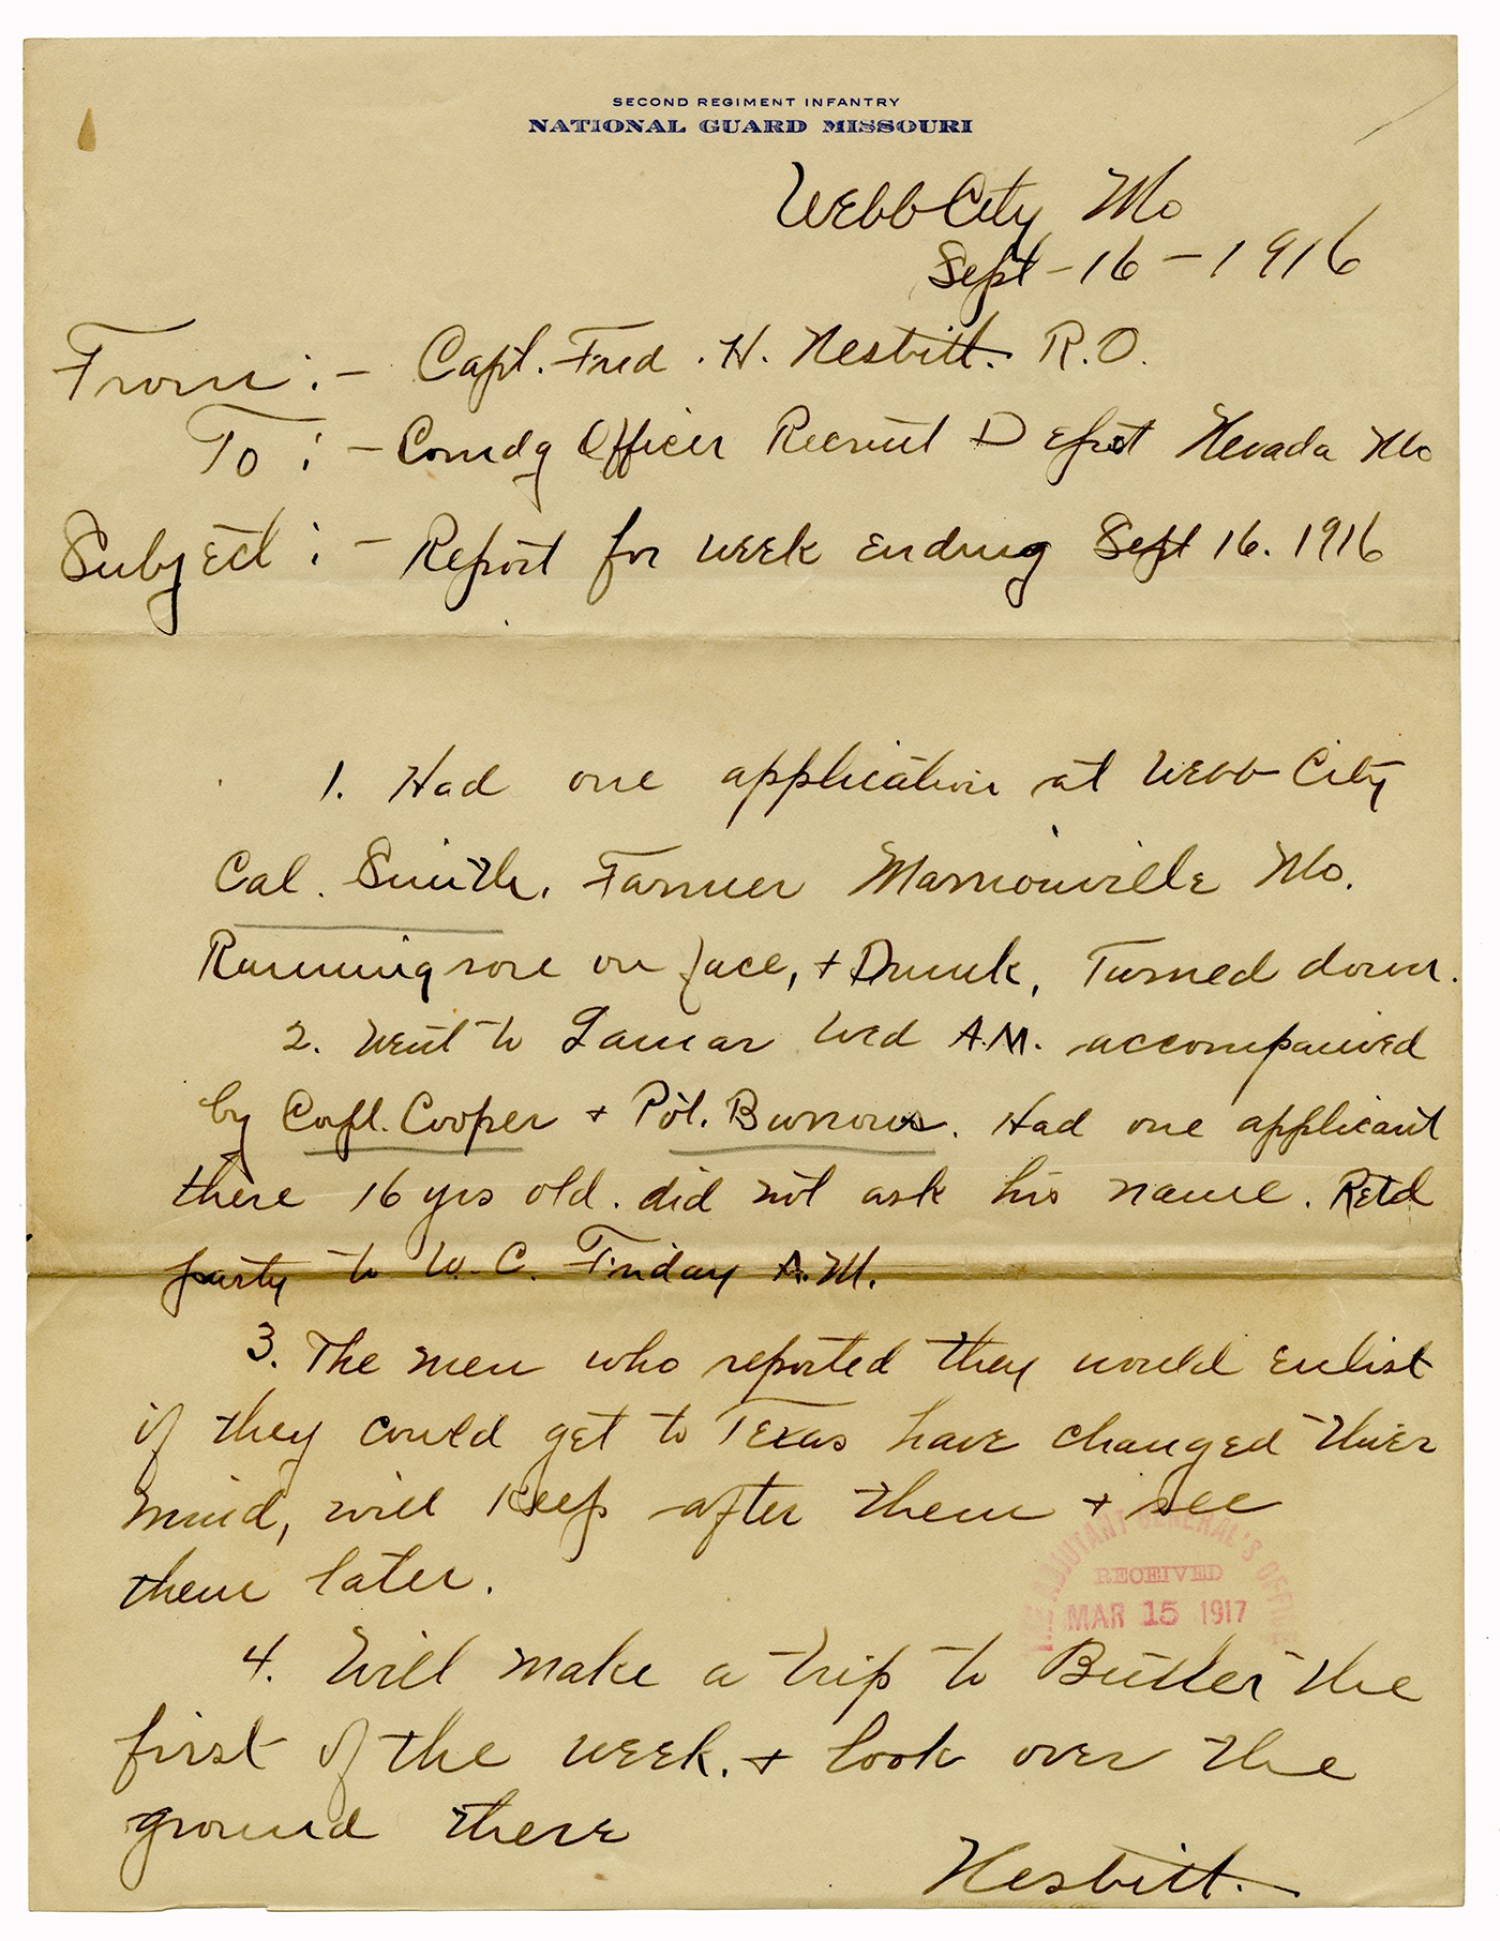 SECOND REGIMENT INFANTRY
NATIONAL GUARD MISSOURI
Webb City Mo
Sept - 16 - 1916
From :- Capt. Fred. H. Nesbitt. R.O.
To :- Comdg Officer Recruit Depot Nevada Mo
Subject :- Report for week ending Sept 16. 1916
1. Had one application at Webb City
Cal. Smith, Farmer Marionville Mo.
Running sore on face, + Drunk, Turned down.
2. Went to Lamar Wed A.M. accompanied
by Capt. Cooper + Pvt. Burrows. Had one applicant
there 16 yrs old. did not ask his name. Retd
party to W.C. Friday A.M.
3. The men who reported they would enlist
if they could get to Texas have changed thier
mind, will keep after them + see
them later.
THE ADJUTANT GENERAL'S OFFICE
RECEIVED
MAR 15 1917
4. Will make a trip to Butler the
first of the week. + look over the
ground there
Nesbitt.